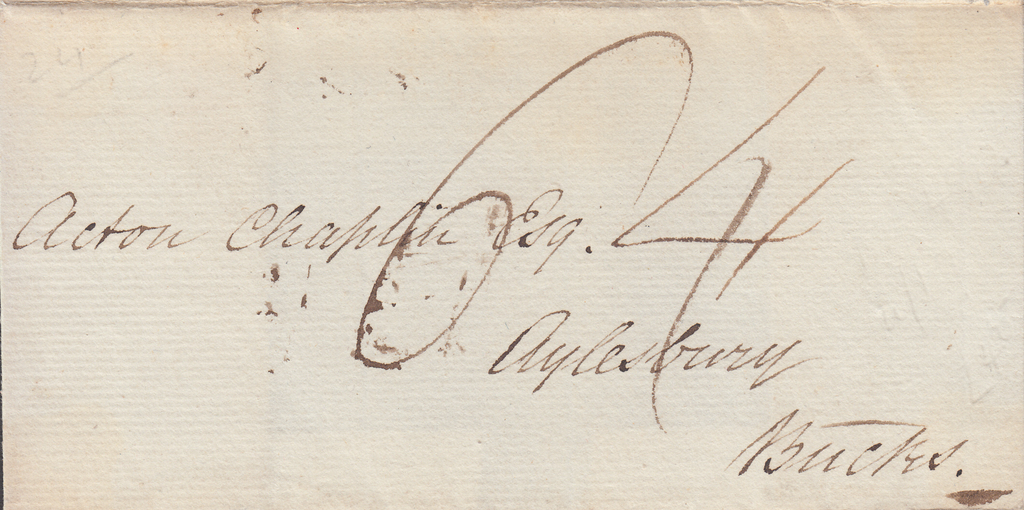 24/
Acton Chaplin Esq.
64
Aylesbury
Bucks.